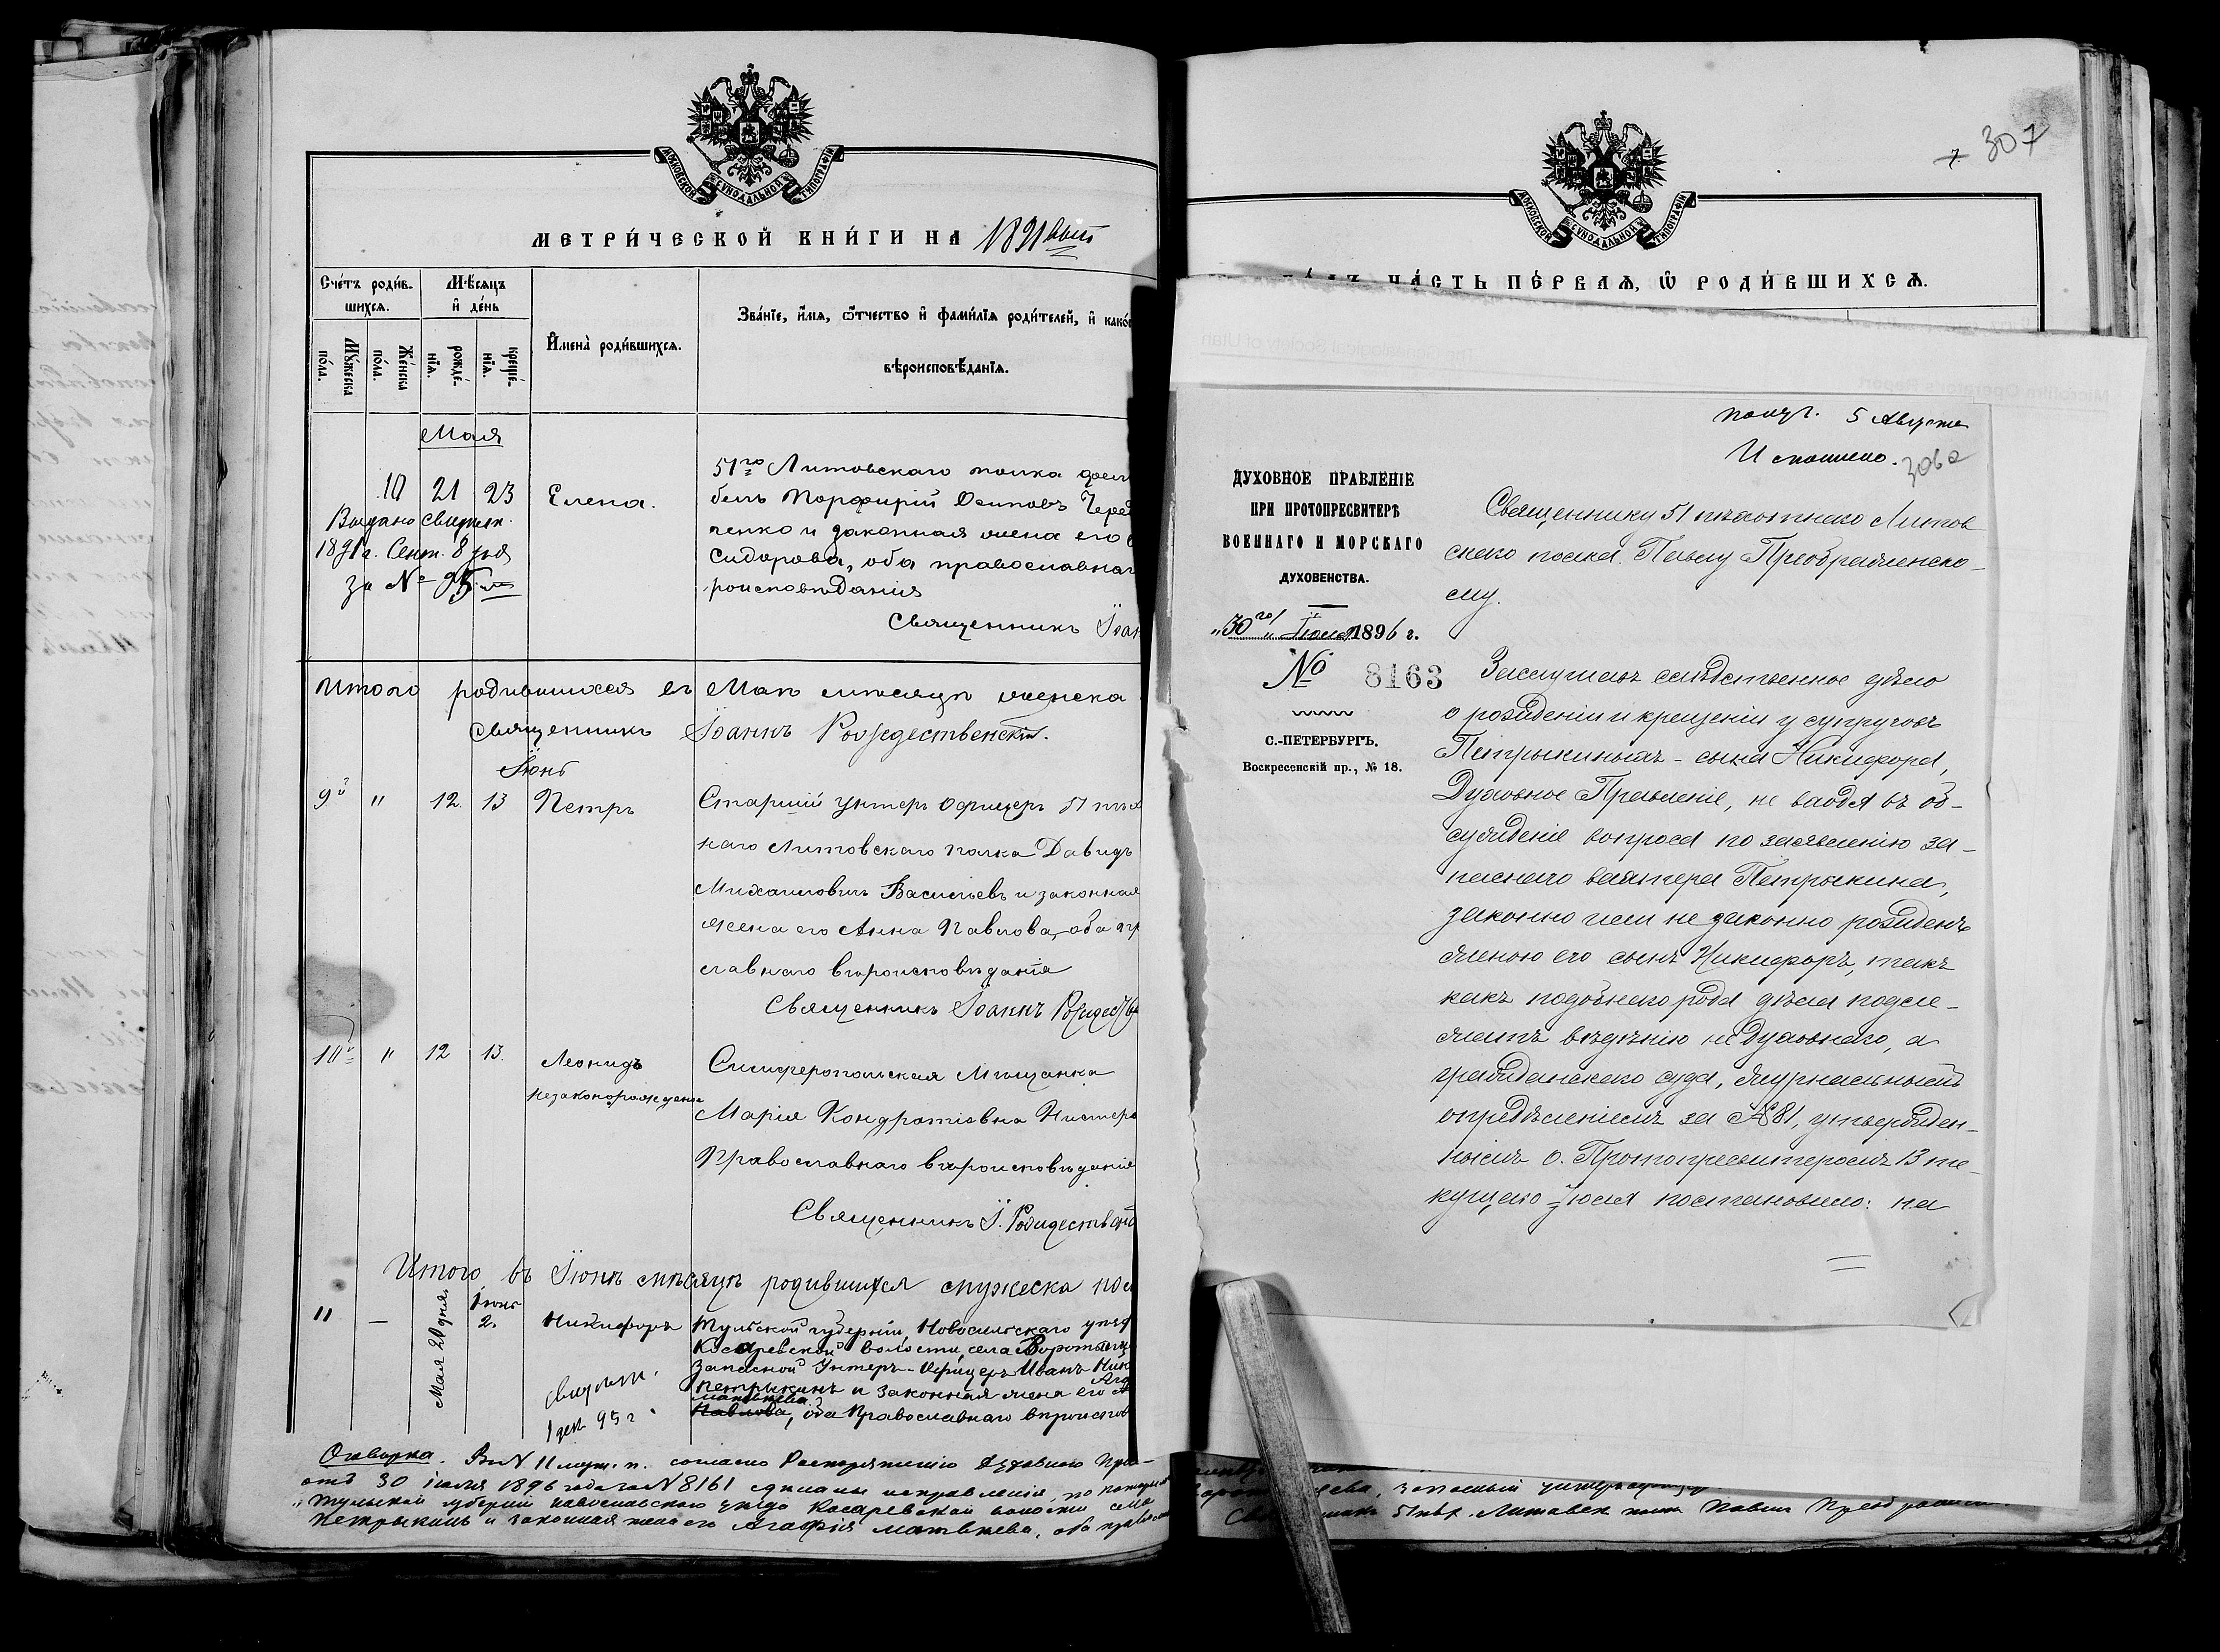 МОСКОВСКОЙ СѴНОДАЛЬНОЙ ТИПОГРАФІИ
МЕТРИ́ЧЕСКОЙ КНИ́ГИ НА 1891
Сче́тъ роди́в-
шихсѧ.
Мѣ́сѧцъ
и҆ де́нь
Мꙋ́жеска
по́ла.
Же́нска
по́ла.
рожде́-
нїѧ.
креще́-
нїѧ.
И҆мена̀ роди́вшихсѧ.
Зва́нїе, и҆́мѧ, ѻ҆́тчество и҆ фами́лїѧ роди́телей, и҆ како́
вѣроисповѣ́данїѧ.
Мая
10 21 23 Елена.
51го Литовскаго полка
Порфирій Осиповъ Черед
ченко и законная жена его
Сидорова, оба православна
роисповѣданія
Священникъ Іоан
Выдано свидѣт.
1891 г. Сент. 8 дня
за № 95
Итого родившихся въ Маѣ мѣсяцѣ женска
Священникъ Іоаннъ Рождественскій.
Іюнь
9й " 12. 13 Петръ
Старшій унтеръ офицеръ 51 пѣх
наго Литовскаго полка Давидъ
Михаиловичъ Васильевъ и законная
жена его Анна Павлова, оба пр
славнаго вѣроисповѣданія
Священникъ Іоаннъ Рождеств
10й " 12 13. Леонидъ
незаконорожден
Симферопольская Мѣщанка
Марія Кондратіевна Нистеро
Православнаго вѣроисповѣданія
Священникъ І. Рождеств
Итого въ Іюнѣ мѣсяцѣ родившихся мужеска пол
11 — Мая 20 дня Іюнь 2. Никифоръ
Тульской губерніи, Новосильскаго уѣзд
Косаревской волости, села Воротынц
Запасной Унтеръ-Офицеръ Иванъ Ник
Петрыкинъ и законная жена его Ага
Матвѣева
Павлова, оба Православнаго вѣроиспов
свидѣт.
1 дек. 95 г.
Оговорка. В № 11 муж. п. согласно Распоряженію Духовнаго Пра-
отъ 30 іюля 1896 года за № 8161 сдѣланы исправленія, по которым
"Тульской губерніи Новосильскаго уѣзда Косаревской волости села
Петрыкинъ и законная жена его Агафія Матвѣева, оба православн
запасный унтеръ
51 пѣх. Литовск. полка Павелъ Преображен
МОСКОВСКОЙ СѴНОДАЛЬНОЙ ТИПОГРАФІИ
307
ЧА́СТЬ ПЕ́РВАѦ, Ѡ҆ РОДИ́ВШИХСѦ.
получ. 5 Августа
Исполнено.
306а
ДУХОВНОЕ ПРАВЛЕНІЕ
ПРИ ПРОТОПРЕСВИТЕРѢ
ВОЕННАГО И МОРСКАГО
ДУХОВЕНСТВА.
„30го" Іюля 1896 г.
№ 8163
С.-ПЕТЕРБУРГЪ.
Воскресенскій пр., № 18.
Священнику 51 пѣхотнаго Литов
скаго полка. Павлу Преображенско-
му.
Заслушавъ слѣдственное дѣло
о рожденіи и крещеніи у супруговъ
Петрыкиныхъ - сына Никифора,
Духовное Правленіе, не входя въ об-
сужденіе вопроса по заявленію за-
паснаго вахтера Петрыкина,
законно или не законно рожденъ
женою его сынъ Никифоръ, такъ
какъ подобнаго рода дѣла подле-
жатъ вѣдѣнію не Духовнаго, а
гражданскаго суда, журнальнымъ
опредѣленіемъ за № 81, утвержден-
нымъ О. Протопресвитеромъ 13 те-
кущаго Іюля постановило: на